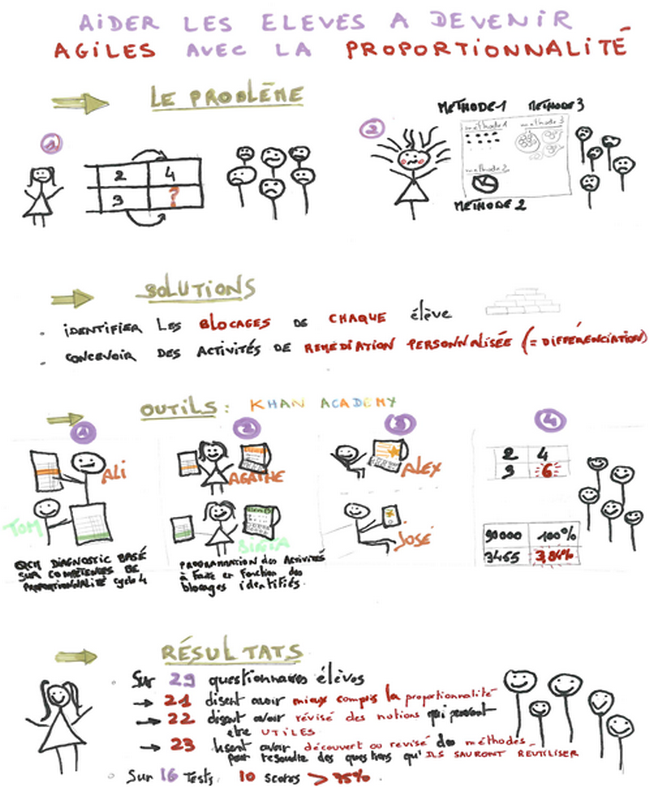 AIDER LES ELEVES A DEVENIR
AGILES AVEC LA PROPORTIONNALITÉ
LE PROBLÈME
1
2 4
3 ?
2
METHODE 1 METHODE 3
méthode 1 méthode 3
méthode 2
METHODE 2
SOLUTIONS
- IDENTIFIER LES BLOCAGES DE CHAQUE élève
- CONCEVOIR DES ACTIVITÉS DE REMÉDIATION PERSONNALISÉE (= DIFFÉRENCIATION)
OUTILS : KHAN ACADEMY
1 2 3 4
ALI
TOM
QCM DIAGNOSTIC BASÉ
SUR COMPÉTENCES DE
PROPORTIONNALITÉ Cycle 4
AGATHE
PROGRAMMATION des ACTIVITÉS
à faire en fonction des
blocages identifiés.
ALEX
JOSÉ
2 4
3 6
100%
3465 3,84%
RÉSULTATS
Sur 29 questionnaires élèves
→ 21 disent avoir mieux compris la proportionnalité
→ 22 disent avoir révisé des notions qui peuvent
être UTILES
→ 23 disent avoir découvert ou revisé des méthodes
pour resoudre des questions qu'ILS SAURONT REUTILISER
Sur 16 Tests. 10 scores > 75%.